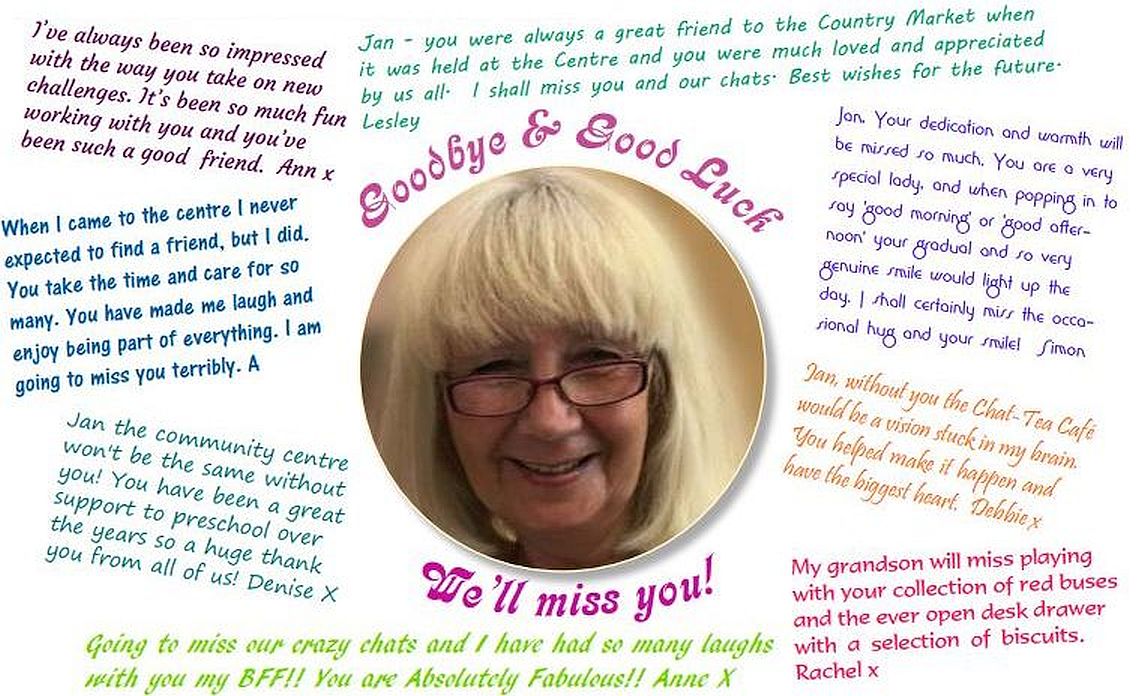 I've always been so impressed
with the way you take on new
challenges. It's been so much fun
working with you and you've
been such a good friend. Ann x
Jan - you were always a great friend to the Country Market when
it was held at the Centre and you were much loved and appreciated
by us all. I shall miss you and our chats. Best wishes for the future.
Lesley
Goodbye & Good Luck
Jan. Your dedication and warmth will
be missed so much. You are a very
special lady, and when popping in to
say 'good morning' or 'good after-
noon' your gradual and so very
genuine smile would light up the
day. I shall certainly miss the occa-
sional hug and your smile! Simon
When I came to the centre I never
expected to find a friend, but I did.
You take the time and care for so
many. You have made me laugh and
enjoy being part of everything. I am
going to miss you terribly. A
Jan, without you the Chat-Tea Café
would be a vision stuck in my brain.
You helped make it happen and
have the biggest heart. Debbie x
Jan the community centre
won't be the same without
you! You have been a great
support to preschool over
the years so a huge thank
you from all of us! Denise X
We'll miss you!
My grandson will miss playing
with your collection of red buses
and the ever open desk drawer
with a selection of biscuits.
Rachel x
Going to miss our crazy chats and I have had so many laughs
with you my BFF!! You are Absolutely Fabulous!! Anne X